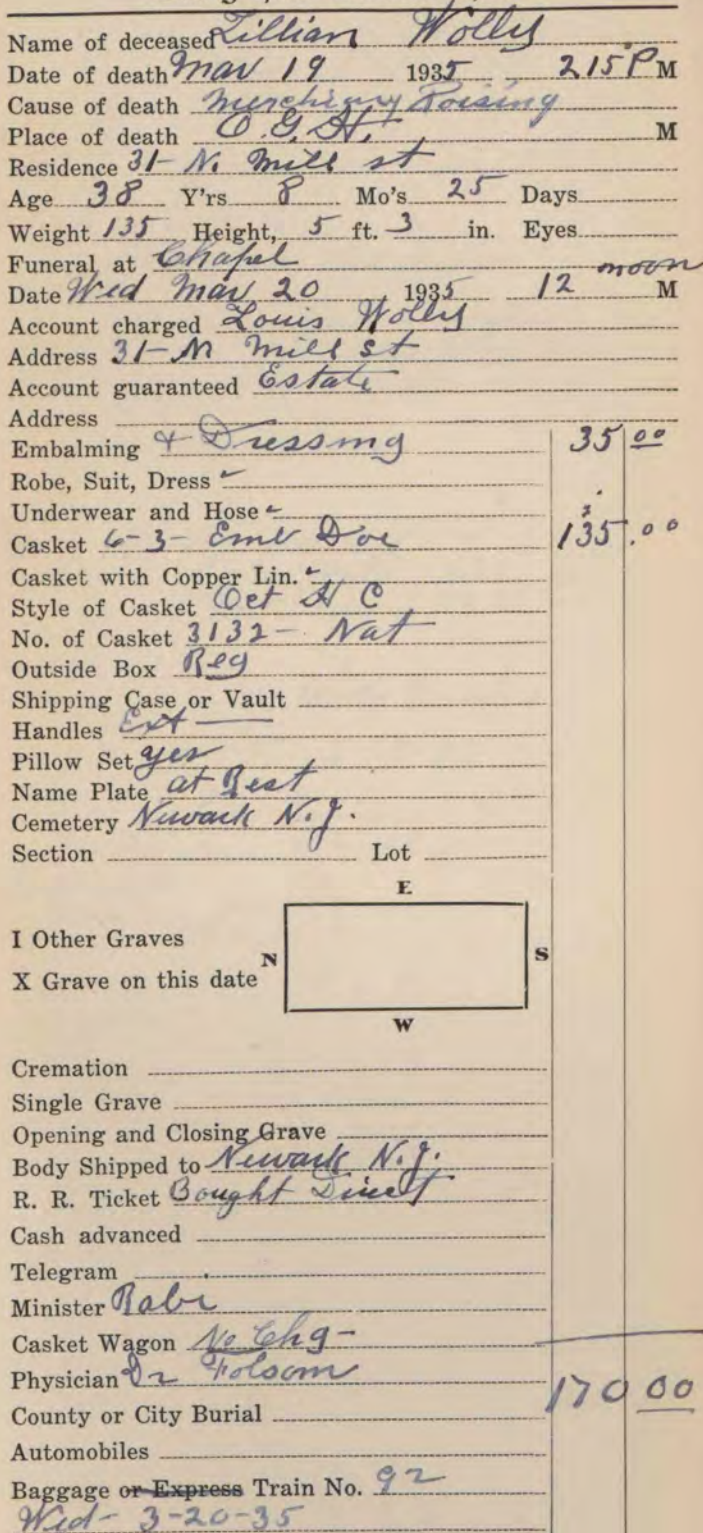 Name of deceased Lillian Wolly
Date of death Mar 19 1935 2 15 P M
Cause of death Murchiary Poising
Place of death O. G. H. M
Residence 31- N. Mill st
Age 38 Y'rs 8 Mo's 25 Days
Weight 135 Height, 5 ft. 3 in. Eyes
Funeral at Chapel
Date Wed Mar 20 1935 12 noon M
Account charged Louis Wolly
Address 31- N Mill St
Account guaranteed Estate
Address
Embalming & Dressing 35 00
Robe, Suit, Dress
Underwear and Hose
Casket 6-3- Emb Doe 135.00
Casket with Copper Lin.
Style of Casket Oct H C
No. of Casket 3132- Nat
Outside Box Reg
Shipping Case or Vault
Handles Ext
Pillow Set yes
Name Plate at Rest
Cemetery Newark N.J.
Section Lot
E
I Other Graves
N S
X Grave on this date
W
Cremation
Single Grave
Opening and Closing Grave
Body Shipped to Newark N.J.
R. R. Ticket Bought Direct
Cash advanced
Telegram
Minister Rabi
Casket Wagon No Chg-
Physician Dr Folsom 170 00
County or City Burial
Automobiles
Baggage or Express Train No. 92
Wed- 3-20-35